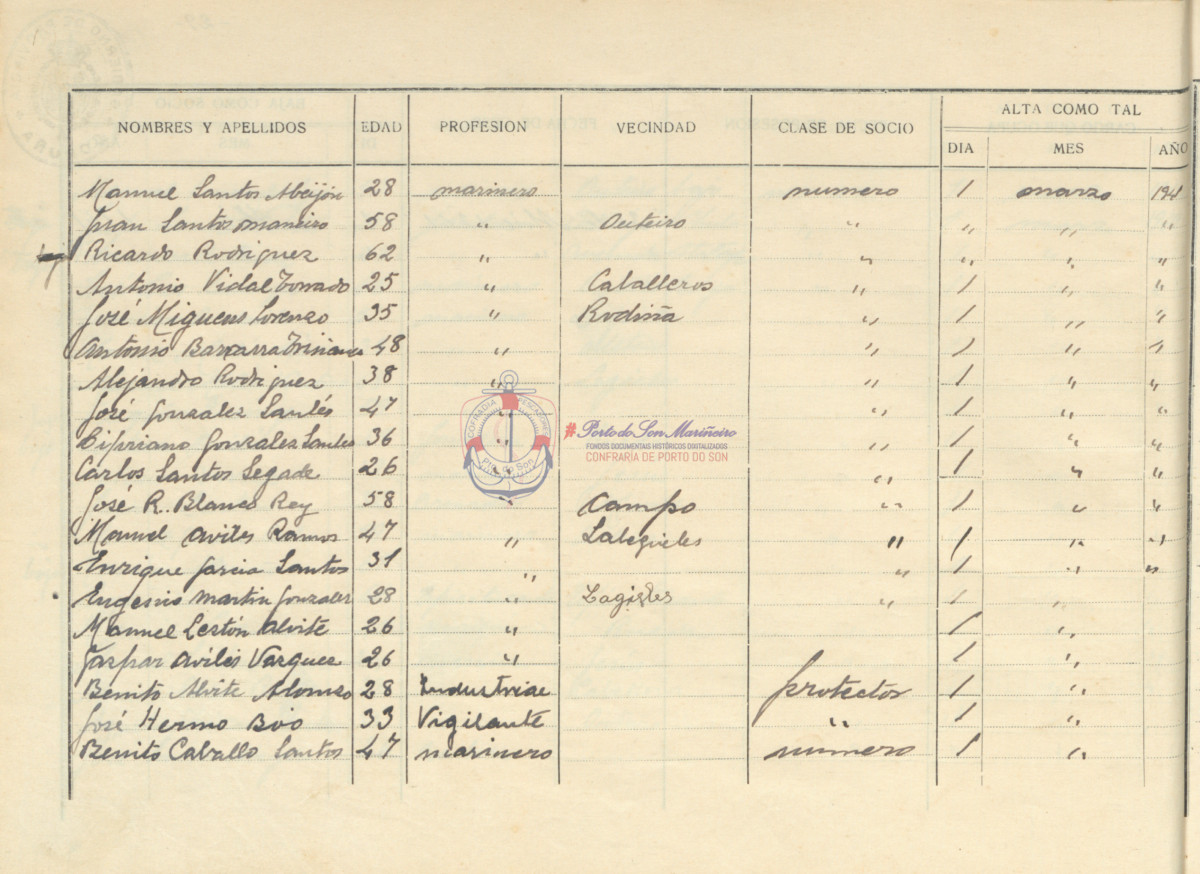 ALTA COMO TAL
NOMBRES Y APELLIDOS EDAD PROFESION VECINDAD CLASE DE SOCIO DIA MES AÑO
Manuel Santos Abeijón 28 marinero numero 1 marzo 1941
Juan Santos Maneiro 58 " Outeiro " " " "
Ricardo Rodriguez 62 " " " " "
Antonio Vidal Torrado 25 " Caballeros " 1 " "
José Miguens Lorenzo 35 " Rodiña " 1 " "
Antonio 48 " " 1 " "
Alejandro Rodriguez 38 " " 1 " "
José Gonzalez Santés 47 " " 1 " "
Cipriano Gonzalez Santes 36 " " 1 " "
Carlos Santos Segade 26 " " 1 " "
José R. Blanco Rey 58 " Campo " 1 " "
Manuel Aviles Ramos 47 " " 1 " "
Enrique Garcia Santos 31 " " 1 " "
Eugenio Martin Gonzalez 28 " " 1 "
Manuel Lestón Alvite 26 " 1 "
Gaspar Avilés Vazquez 26 " 1 "
Benito Alvite Alonso 28 Industrial protector 1 "
José Hermo Boo 33 Vigilante " 1 "
Benito Caballo Santos 47 marinero número 1 "
COFRADIA PESCADORES
Pto. do Son
#Porto do Son Mariñeiro
FONDOS DOCUMENTAIS HISTÓRICOS DIGITALIZADOS
CONFRARÍA DE PORTO DO SON